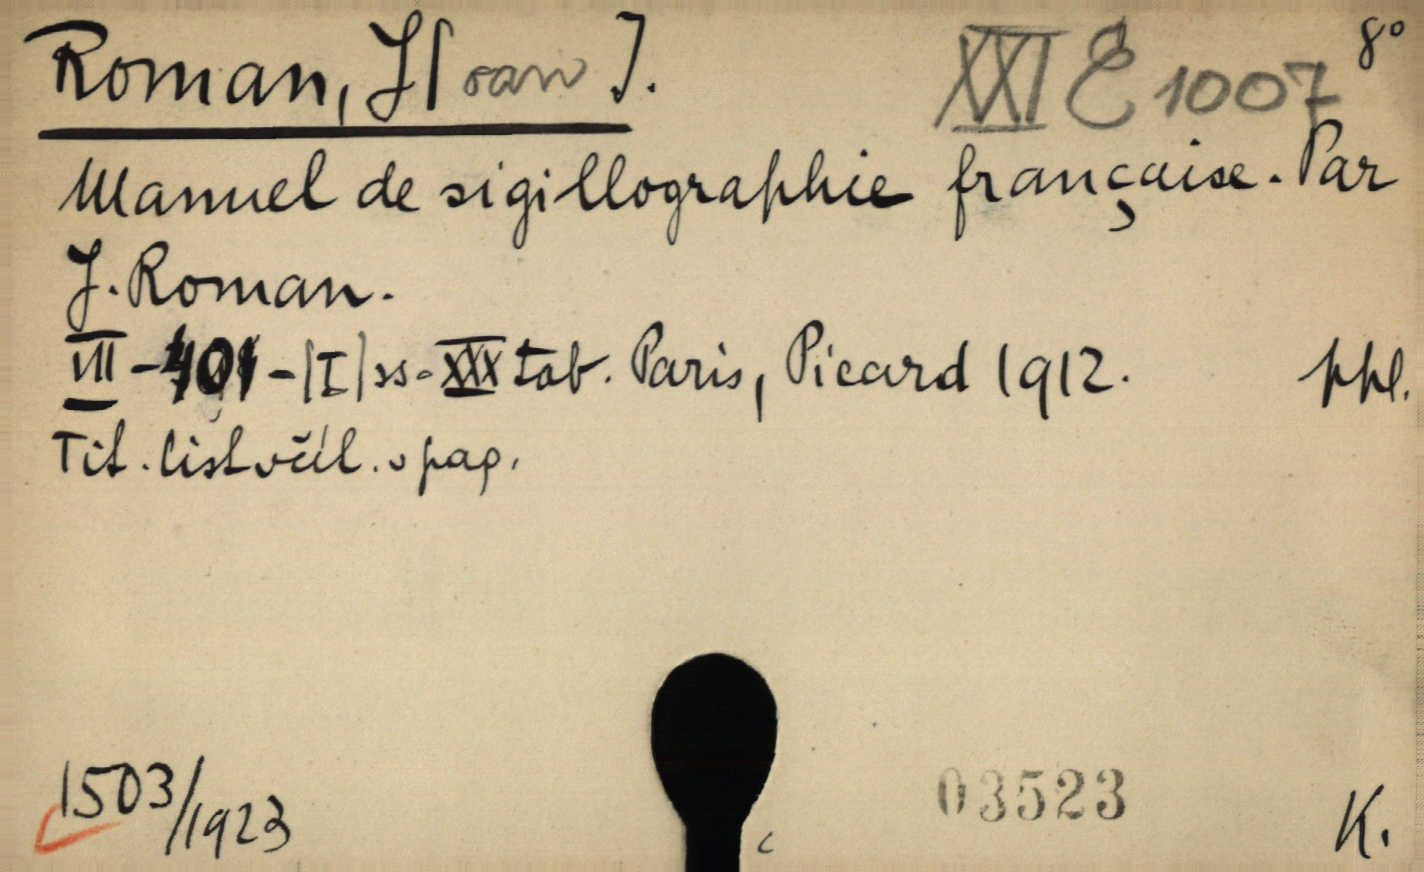 Roman, J[ean].
XXI E 1007
8°
Manuel de sigillographie française. Par
J. Roman.
VIII - 401 - |I| ss - XXX tab. Paris, Picard 1912. ppl.
Tit. list včil. v pag.
1503/1923
03523
K.